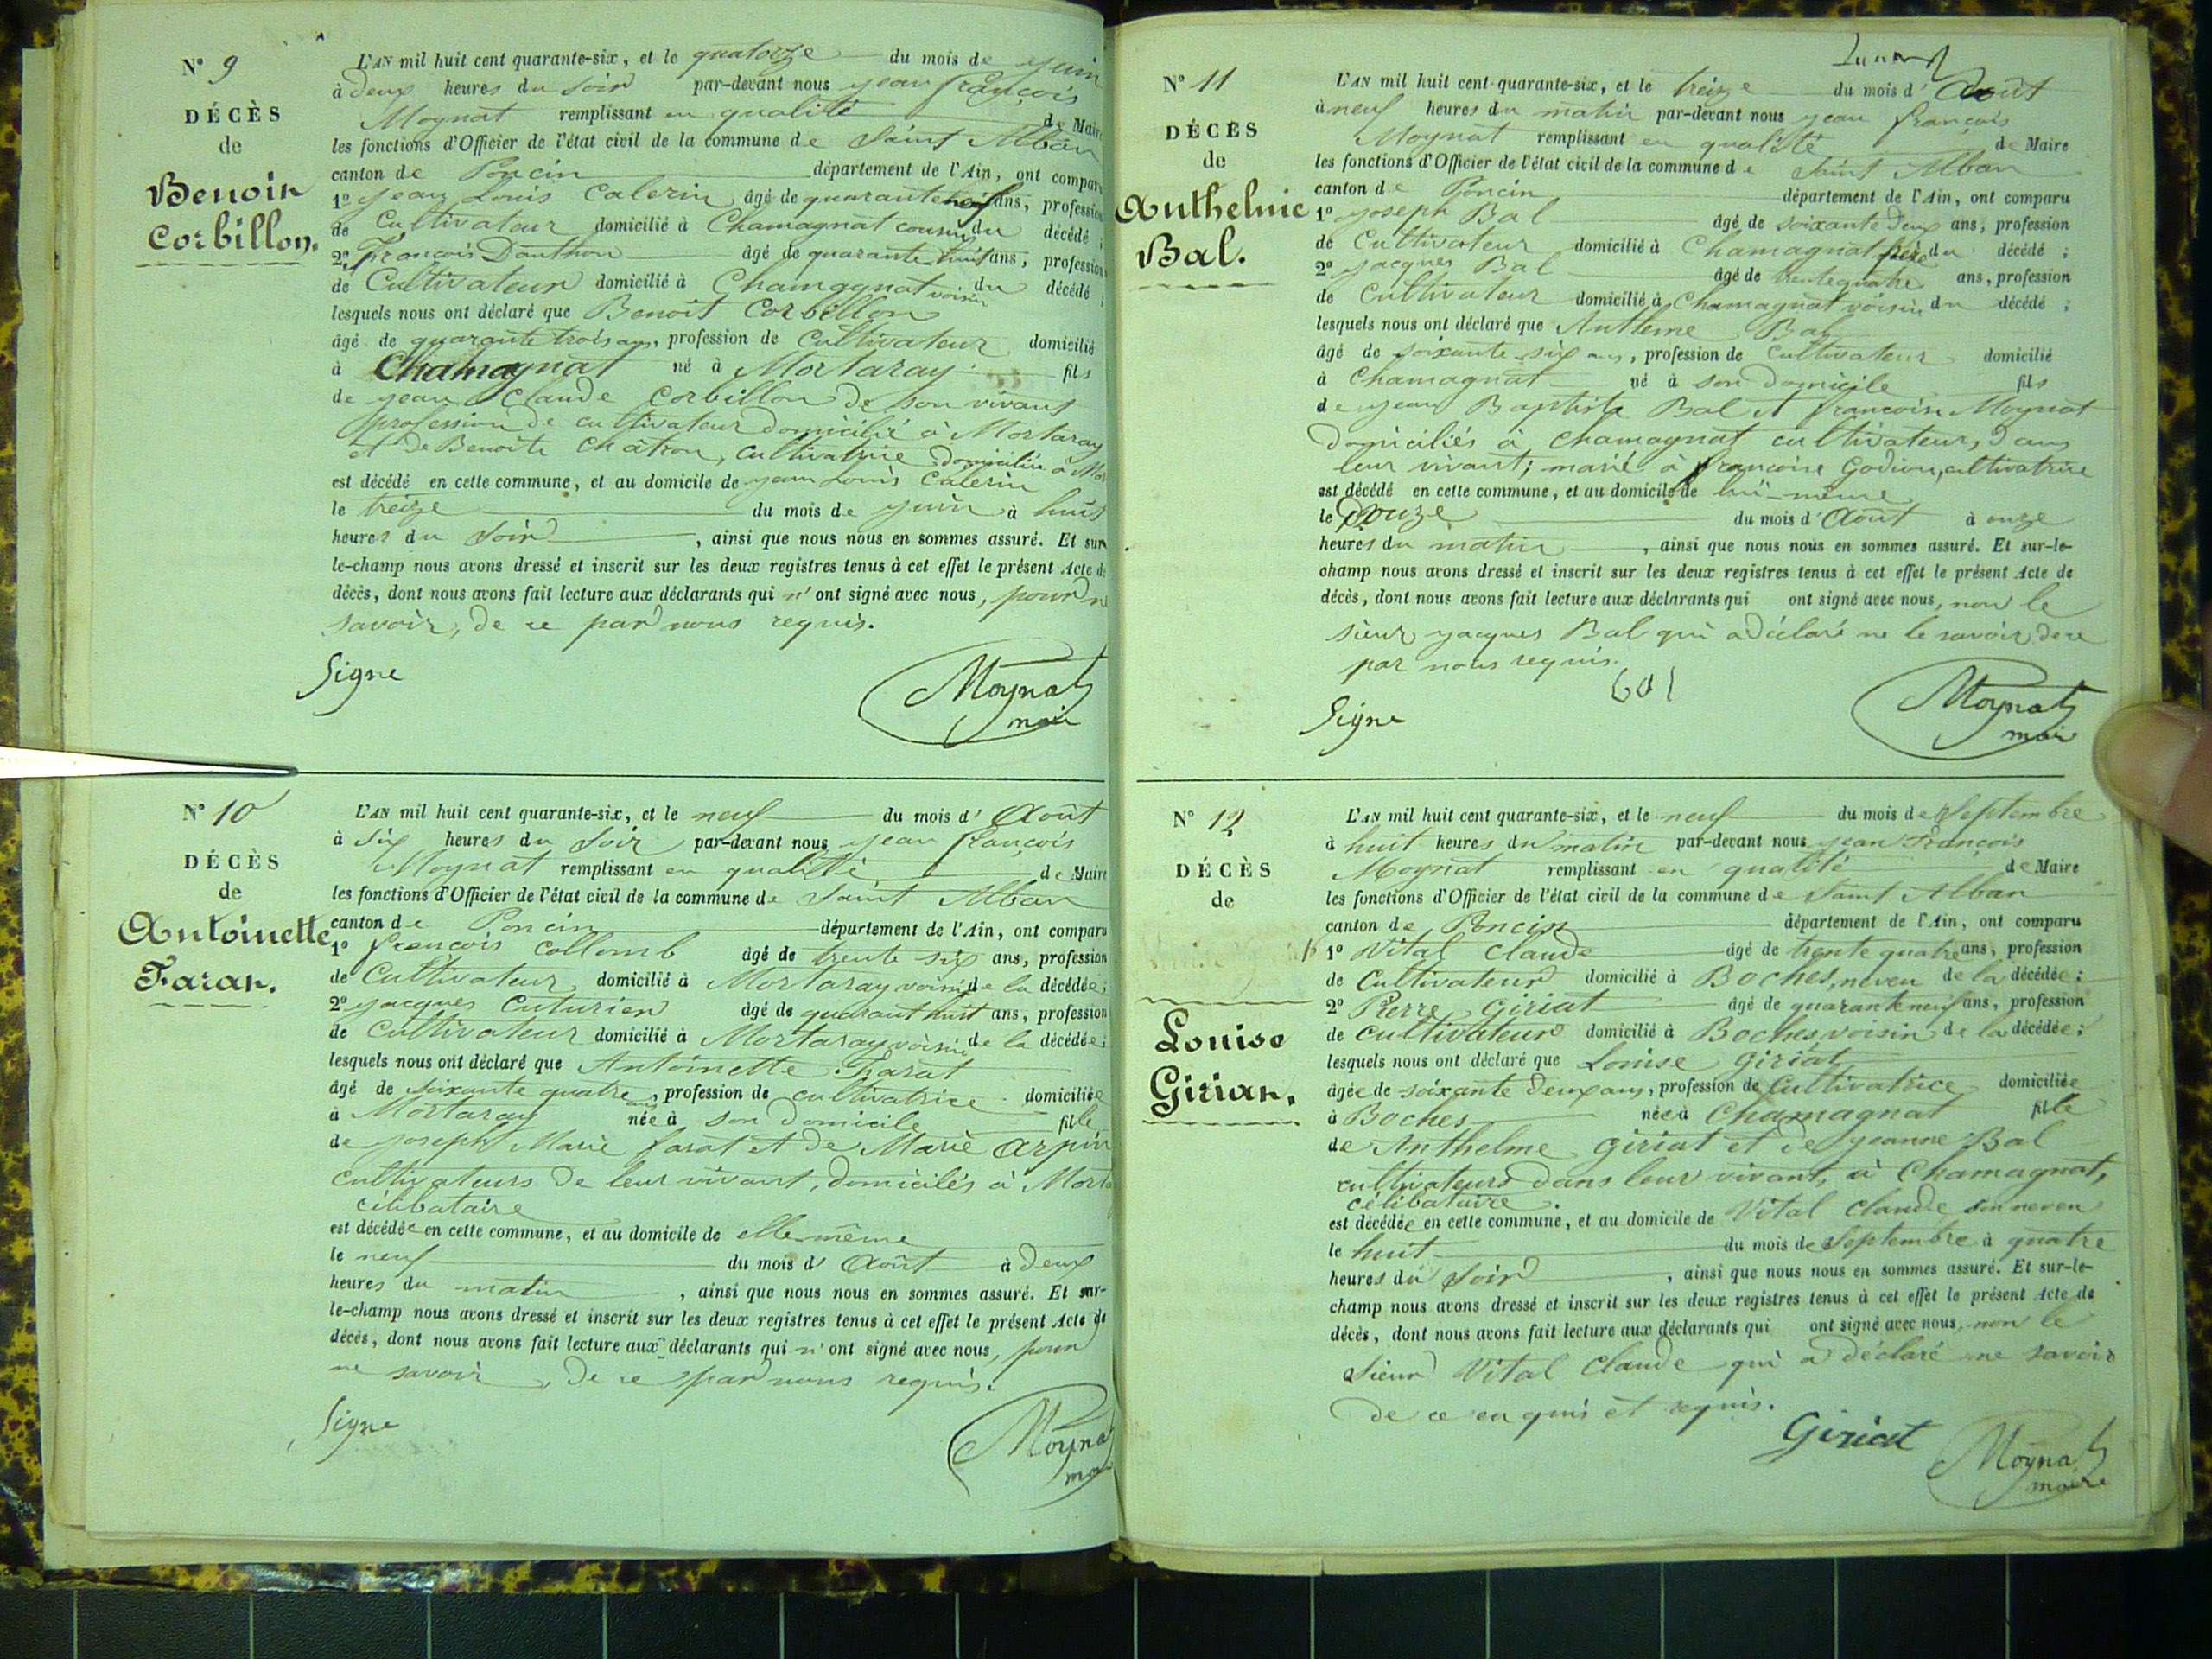 N° 9
DÉCÈS
de
Benoin
Corbillon.
L'AN mil huit cent quarante-six, et le quatorze du mois de juin
à deux heures du soir par-devant nous jean françois
Moynat remplissant en qualité de Maire
les fonctions d'Officier de l'état civil de la commune de Saint Alban
canton de Poncin département de l'Ain, ont comparu
1° jean Louis Calerin âgé de quarante neuf ans, profession
de Cultivateur domicilié à Chamagnat cousin du décédé ;
2° François Dauthon âgé de quarante huit ans, profession
de Cultivateur domicilié à Chamagnat voisin du décédé ;
lesquels nous ont déclaré que Benoit Corbillon
âgé de quarante trois ans, profession de Cultivateur domicilié
à Chamagnat né à Mortaray fils
de jean Claude Corbillon de son vivant
profession de cultivateur domicilié à Mortaray
et de Benoite Chatron, cultivatrice domiciliée à Mor
est décédé en cette commune, et au domicile de jean Louis Calerin
le treize du mois de juin à huit
heures du soir, ainsi que nous nous en sommes assuré. Et sur
le-champ nous avons dressé et inscrit sur les deux registres tenus à cet effet le présent Acte de
décès, dont nous avons fait lecture aux déclarants qui n'ont signé avec nous, pour ne
savoir, de ce par nous requis.
Signe
Moynat
maire
N° 10
DÉCÈS
de
Antoinette
Faran.
L'AN mil huit cent quarante-six, et le neuf du mois d'Août
à six heures du soir par-devant nous jean françois
Moynat remplissant en qualité de Maire
les fonctions d'Officier de l'état civil de la commune de Saint Alban
canton de Poncin département de l'Ain, ont comparu
1° françois Collomb âgé de trente six ans, profession
de Cultivateur domicilié à Mortaray voisin de la décédée ;
2° jacques Cuturien âgé de quarant huit ans, profession
de Cultivateur domicilié à Mortaray voisin de la décédée ;
lesquels nous ont déclaré que Antoinette Farat
âgé de soixante quatre ans, profession de cultivatrice domiciliée
à Mortaray née à son domicile fille
de joseph Marie farat et de Marie Arpin
cultivateurs de leur vivant, domiciliés à Morta
célibataire
est décédée en cette commune, et au domicile de elle-même
le neuf du mois d'Août à deux
heures du matin, ainsi que nous nous en sommes assuré. Et sur-
le-champ nous avons dressé et inscrit sur les deux registres tenus à cet effet le présent Acte de
décès, dont nous avons fait lecture aux déclarants qui n'ont signé avec nous, pour
ne savoir, de ce par nous requis.
Signe
Moynat
mai
N° 11
DÉCÈS
de
Anthelmie
Bal.
L'AN mil huit cent quarante-six, et le treize du mois d'Août
à neuf heures du matin par-devant nous jean françois
Moynat remplissant en qualité de Maire
les fonctions d'Officier de l'état civil de la commune de Saint Alban
canton de Poncin département de l'Ain, ont comparu
1° joseph Bal âgé de soixante deux ans, profession
de Cultivateur domicilié à Chamagnat frère du décédé ;
2° jacques Bal âgé de trente quatre ans, profession
de Cultivateur domicilié à Chamagnat voisin du décédé ;
lesquels nous ont déclaré que Antleme Bal
âgé de soixante six ans, profession de Cultivateur domicilié
à Chamagnat né à son domicile fils
de jean Baptiste Bal et françoise Moynat
domiciliés à Chamagnat cultivateurs, dans
leur vivant; marié à françoise Godion, cultivatrice
est décédé en cette commune, et au domicile de lui-même
le Douze du mois d'Août à onze
heures du matin, ainsi que nous nous en sommes assuré. Et sur-le-
champ nous avons dressé et inscrit sur les deux registres tenus à cet effet le présent Acte de
décès, dont nous avons fait lecture aux déclarants qui ont signé avec nous, non le
sieur jacques Bal qui a déclaré ne le savoir, de ce
par nous requis.
Signe
Moynat
mair
N° 12
DÉCÈS
de
Louise
Girian.
L'AN mil huit cent quarante-six, et le neuf du mois de Septembre
à huit heures du matin par-devant nous jean François
Moynat remplissant en qualité de Maire
les fonctions d'Officier de l'état civil de la commune de Saint Alban
canton de Poncin département de l'Ain, ont comparu
1° Vital Claude âgé de trente quatre ans, profession
de Cultivateur domicilié à Boches, neveu de la décédée ;
2° Pierre Giriat âgé de quarante neuf ans, profession
de cultivateur domicilié à Boches, voisin de la décédée ;
lesquels nous ont déclaré que Louise Giriat
âgée de soixante deux ans, profession de Cultivatrice domiciliée
à Boches née à Chamagnat fille
de Anthelme Giriat et de jeanne Bal
cultivateurs dans leur vivant, à Chamagnat,
célibataire.
est décédée en cette commune, et au domicile de Vital Claude son neveu
le huit du mois de Septembre à quatre
heures du soir, ainsi que nous nous en sommes assuré. Et sur-le-
champ nous avons dressé et inscrit sur les deux registres tenus à cet effet le présent Acte de
décès, dont nous avons fait lecture aux déclarants qui ont signé avec nous, non le
sieur Vital Claude qui a déclaré ne savoir
de ce enquis et requis.
Giriat
Moynat
maire